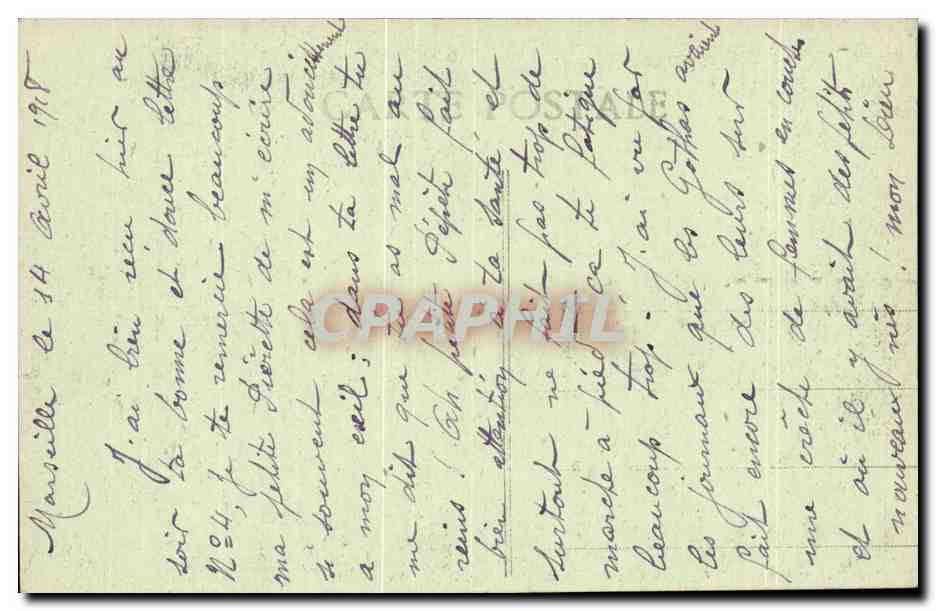 Marseille le 14 Avril 1918
J'ai bien réçu hier au
soir ta bonne et douce lettre
N=o4, Je te remercie beaucoup
ma petite Pierette de m'écrire
si souvent cela est un adoucissement
a mon exil; dans ta lettre tu
me dit que tu as mal au
reins! Ah petite Pépète fait
bien attention a ta santé, et
surtout ne fait pas trop de
marche a pied, ça te fatigue
beaucoup trop. J'ai vu par
les journaux que les Gothas avaient
fait encore des leurs sur
une crèche de femmes en couches
et où il y avait des petits
nouveaux nés! mon bien
CARTE POSTALE
CPAPHIL